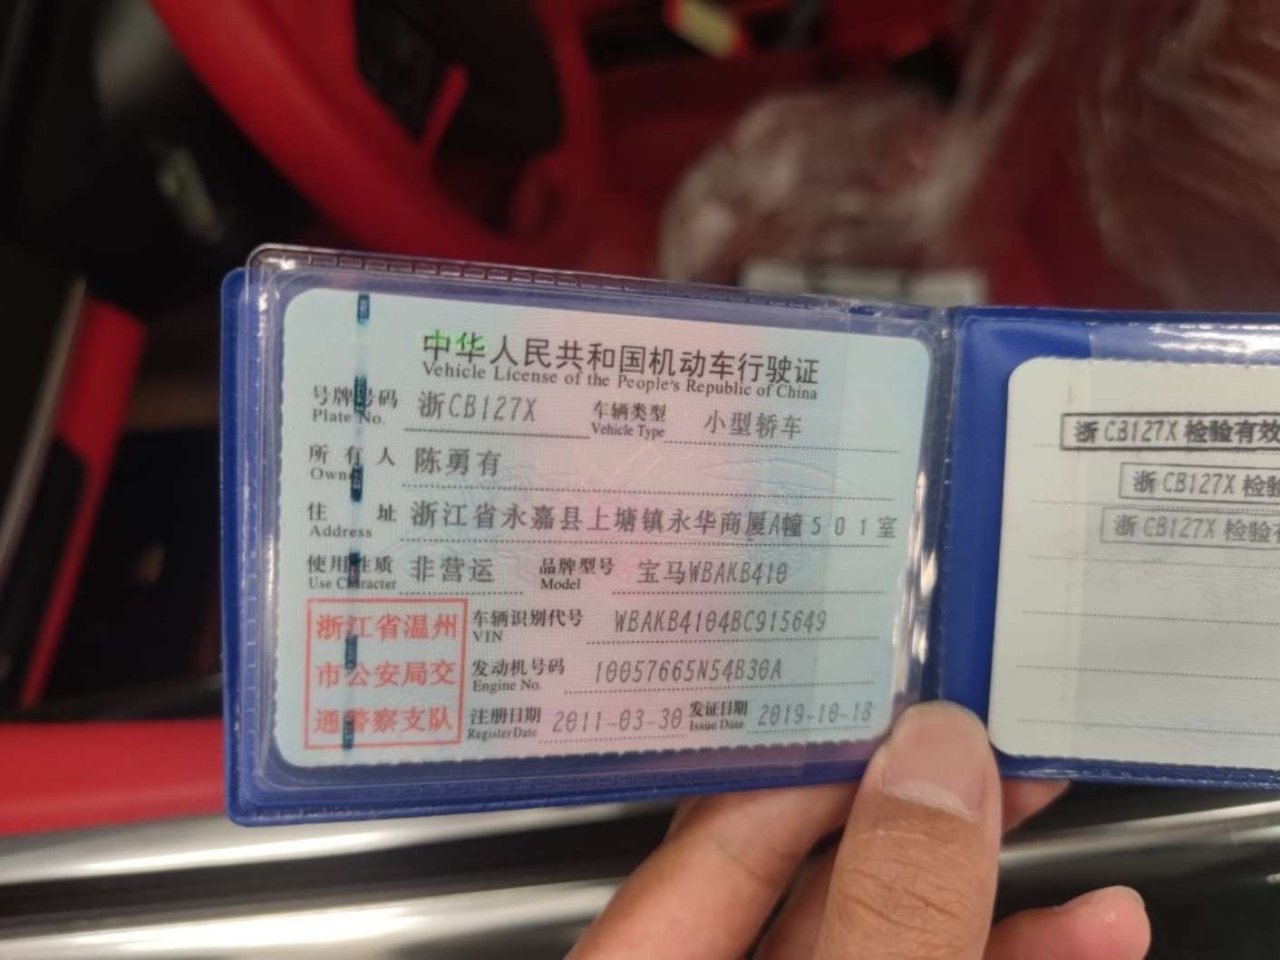 中华人民共和国机动车行驶证
Vehicle License of the People's Republic of China
号牌号码 浙CB127X 车辆类型 小型轿车
Plate No. Vehicle Type
所有人 陈勇有
Owner
住址 浙江省永嘉县上塘镇永华商厦A幢501室
Address
使用性质 非营运 品牌型号 宝马WBAKB410
Use Character Model
浙江省温州
市公安局交
通警察支队
车辆识别代号 WBAKB4104BC915649
VIN
发动机号码 10057665N54B30A
Engine No.
注册日期 2011-03-30 发证日期 2019-10-18
Register Date Issue Date
浙CB127X 检验有效
浙CB127X 检验
浙CB127X 检验有